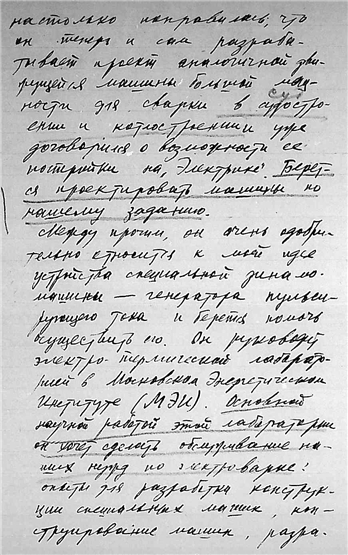 настолько понравилась, что
он теперь и сам разраба-
тывает проект аналогичной дви-
жущейся машины большой мощ-
ности для сварки в судостро-
ении и котлостроении и уже
договорился о возможности ее
постройки на „Электрике“. Берет-
ся проектировать машины по
нашему заданию.
Между прочим, он очень одобри-
тельно относится к моей идее
устройства специальной динамо-
машины — генератора пульси-
рующего тока и берется помочь
осуществить его. Он руководит
электро-термической лаборато-
рией в Московском Энергетическом
Институте (МЭИ) Основной
научной работой этой лаборатории
он хочет сделать обслуживание на-
ших нужд по электросварке:
опыты для разработки конструк-
ции специальных машин, кон-
струирование машин, разра-